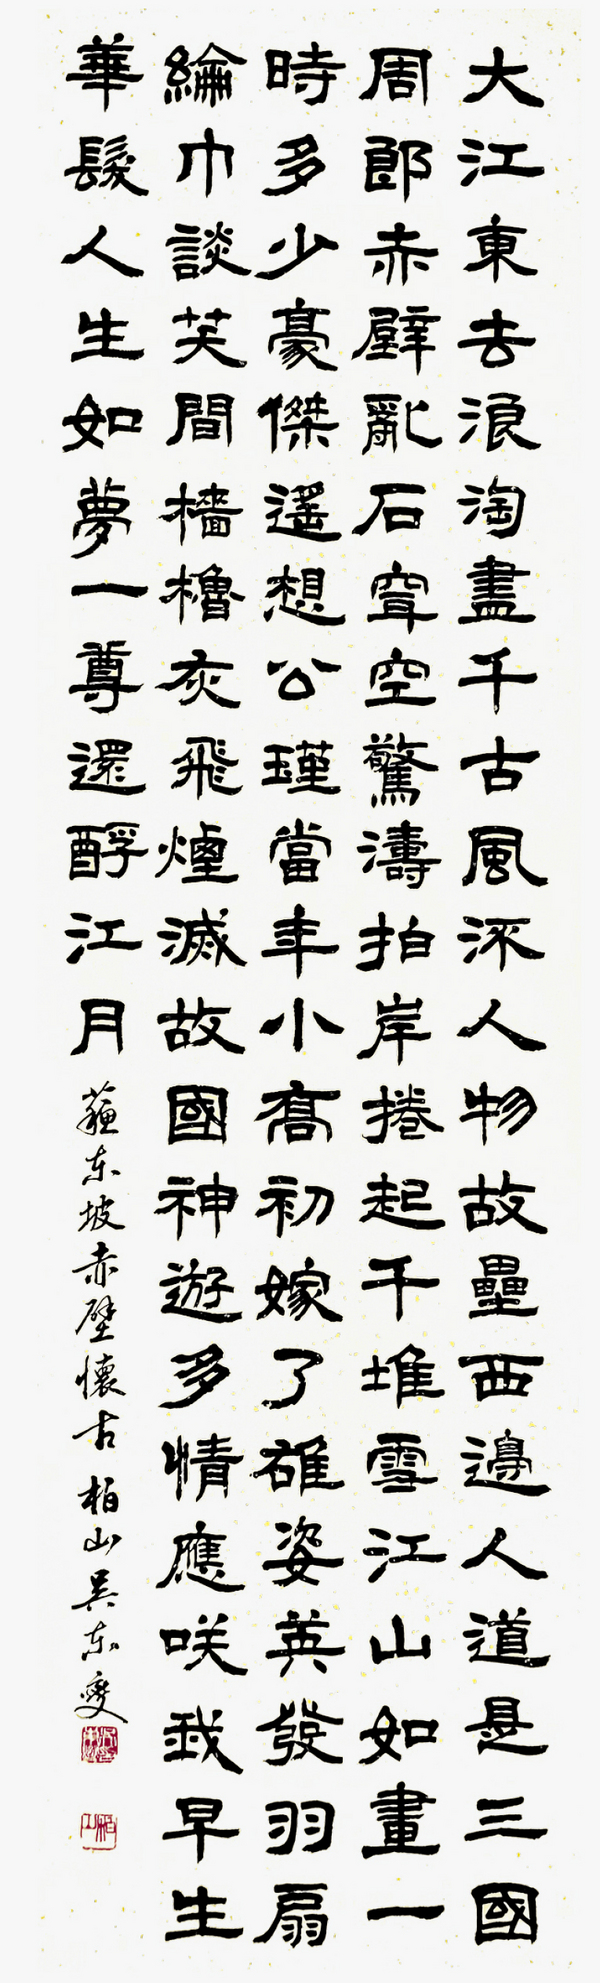 大江東去浪淘盡千古風流人物故壘西邊人道是三國
周郎赤壁亂石穿空驚濤拍岸捲起千堆雪江山如畫一
時多少豪傑遙想公瑾當年小喬初嫁了雄姿英發羽扇
綸巾談笑間檣櫓灰飛煙滅故國神遊多情應咲我早生
華髮人生如夢一尊還酹江月
蘇東坡赤壁懷古 柏山吳东燮